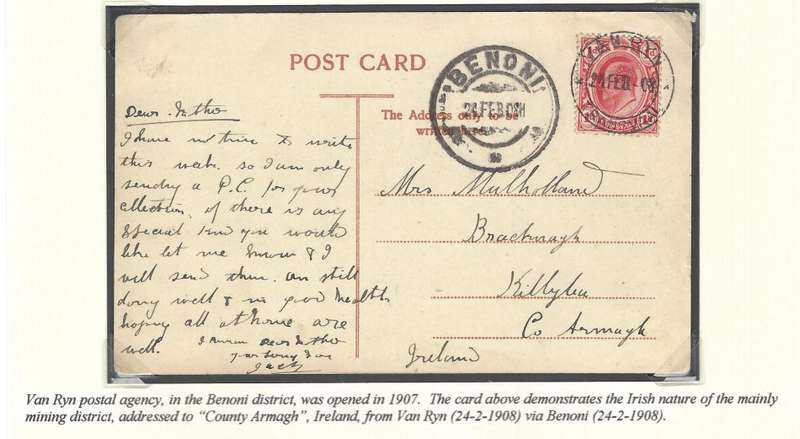 POST CARD
BENONI
24 FEB 08
VAN RYN
24 FEB 08
The Address only to be
written here.
Dear Mother
I have no time to write
this week. so I am only
sending a P.C. for your
collection, if there is any
special kind you would
like let me know & I
will send them. am still
doing well & in good health
hoping all at home are
well. I remain Dear Mother
Your loving Son
Jack
Mrs Mulholland
Brackmagh
Killylea
Co Armagh
Ireland
Van Ryn postal agency, in the Benoni district, was opened in 1907. The card above demonstrates the Irish nature of the mainly
mining district, addressed to “County Armagh”, Ireland, from Van Ryn (24-2-1908) via Benoni (24-2-1908).